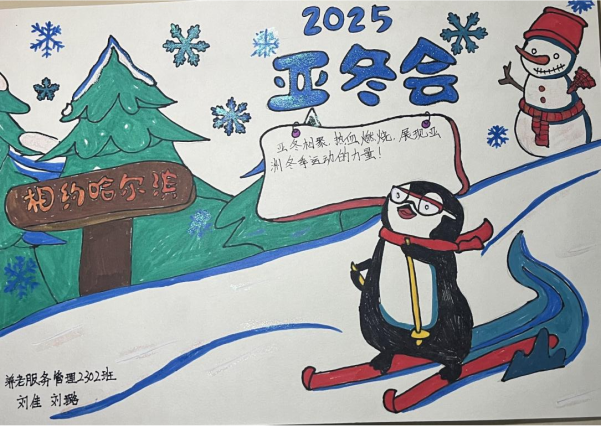 2025
亚冬会
亚冬相聚,热血燃烧,展现亚
洲冬季运动的力量!
相约哈尔滨
养老服务管理2302班
刘佳 刘璐